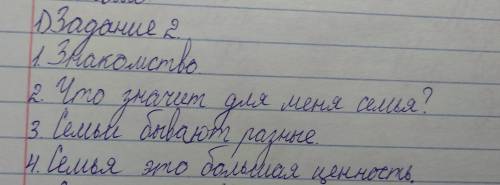 1) Задание 2.
1. Знакомство.
2. Что значит для меня семья?
3. Семьи бывают разные.
4. Семья это большая ценность.